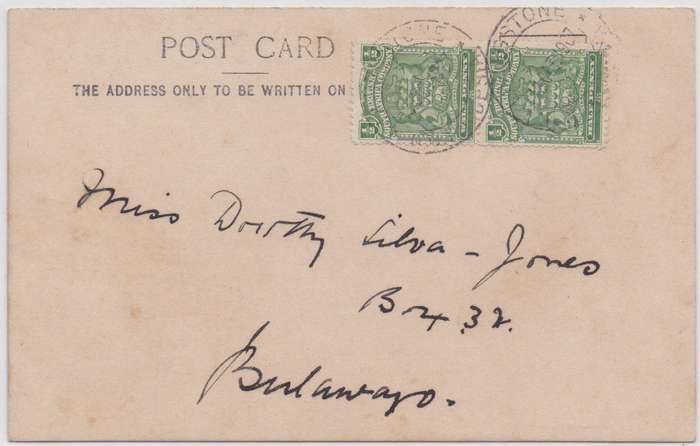 POST CARD
THE ADDRESS ONLY TO BE WRITTEN ON
Miss Dorothy Silva - Jones
Box 32.
Bulawayo.